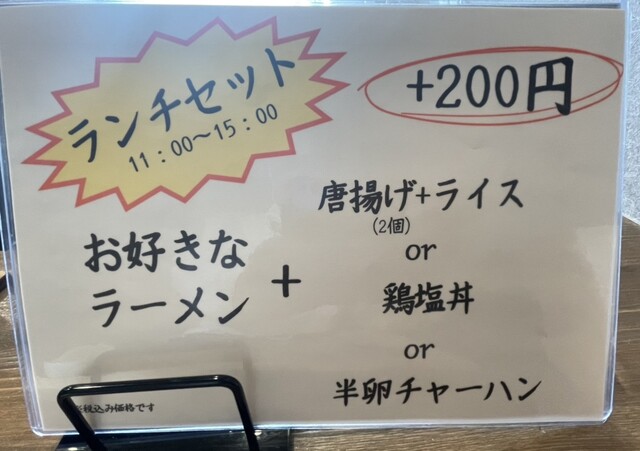 ランチセット
11：00～15：00
+200円
お好きな
ラーメン
+
唐揚げ+ライス
(2個)
or
鶏塩丼
or
半卵チャーハン
※税込み価格です